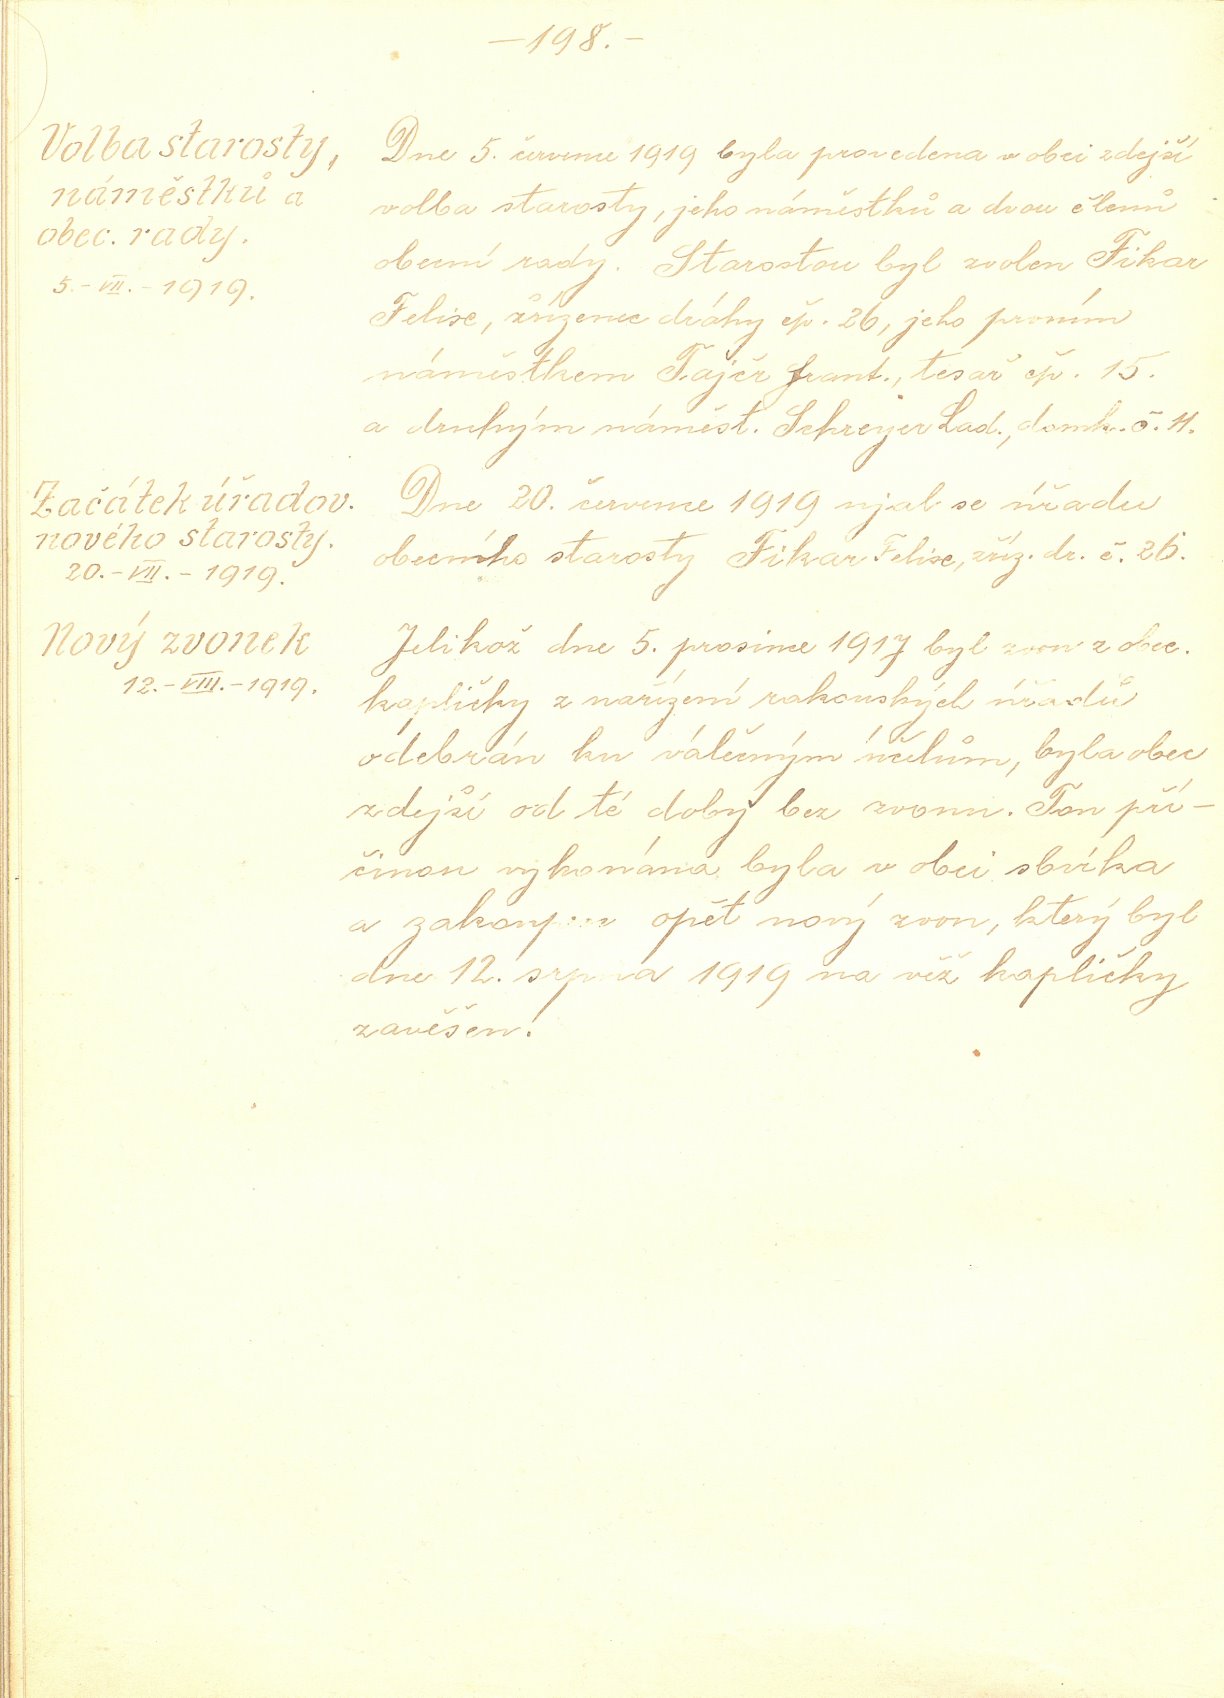 —198.—
Volba starosty,
náměstků a
obec. rady.
5.-VII.-1919.
Dne 5. července 1919 byla provedena v obci zdejší
volba starosty, jeho náměstků a dvou členů
obecní rady. Starostou byl zvolen Fikar
Felix, zřízenec dráhy čp. 26, jeho prvním
náměstkem Fajčr Frant., tesař čp. 15.
a druhým náměst. Schreyer Lad., domk. č. 11.
Začátek úřadov.
nového starosty.
20.-VII.-1919.
Dne 20. července 1919 ujal se úřadu
obecního starosty Fikar Felix, zříz. dr. č. 26.
Nový zvonek
12.-VIII.-1919.
Jelikož dne 5. prosince 1917 byl zvon z obec.
kapličky z nařízení rakouských úřadů
odebrán ku válečným účelům, byla obec
zdejší od té doby bez zvonu. Tou pří-
činou vykonána byla v obci sbírka
a zakoupen opět nový zvon, který byl
dne 12. srpna 1919 na věž kapličky
zavěšen.